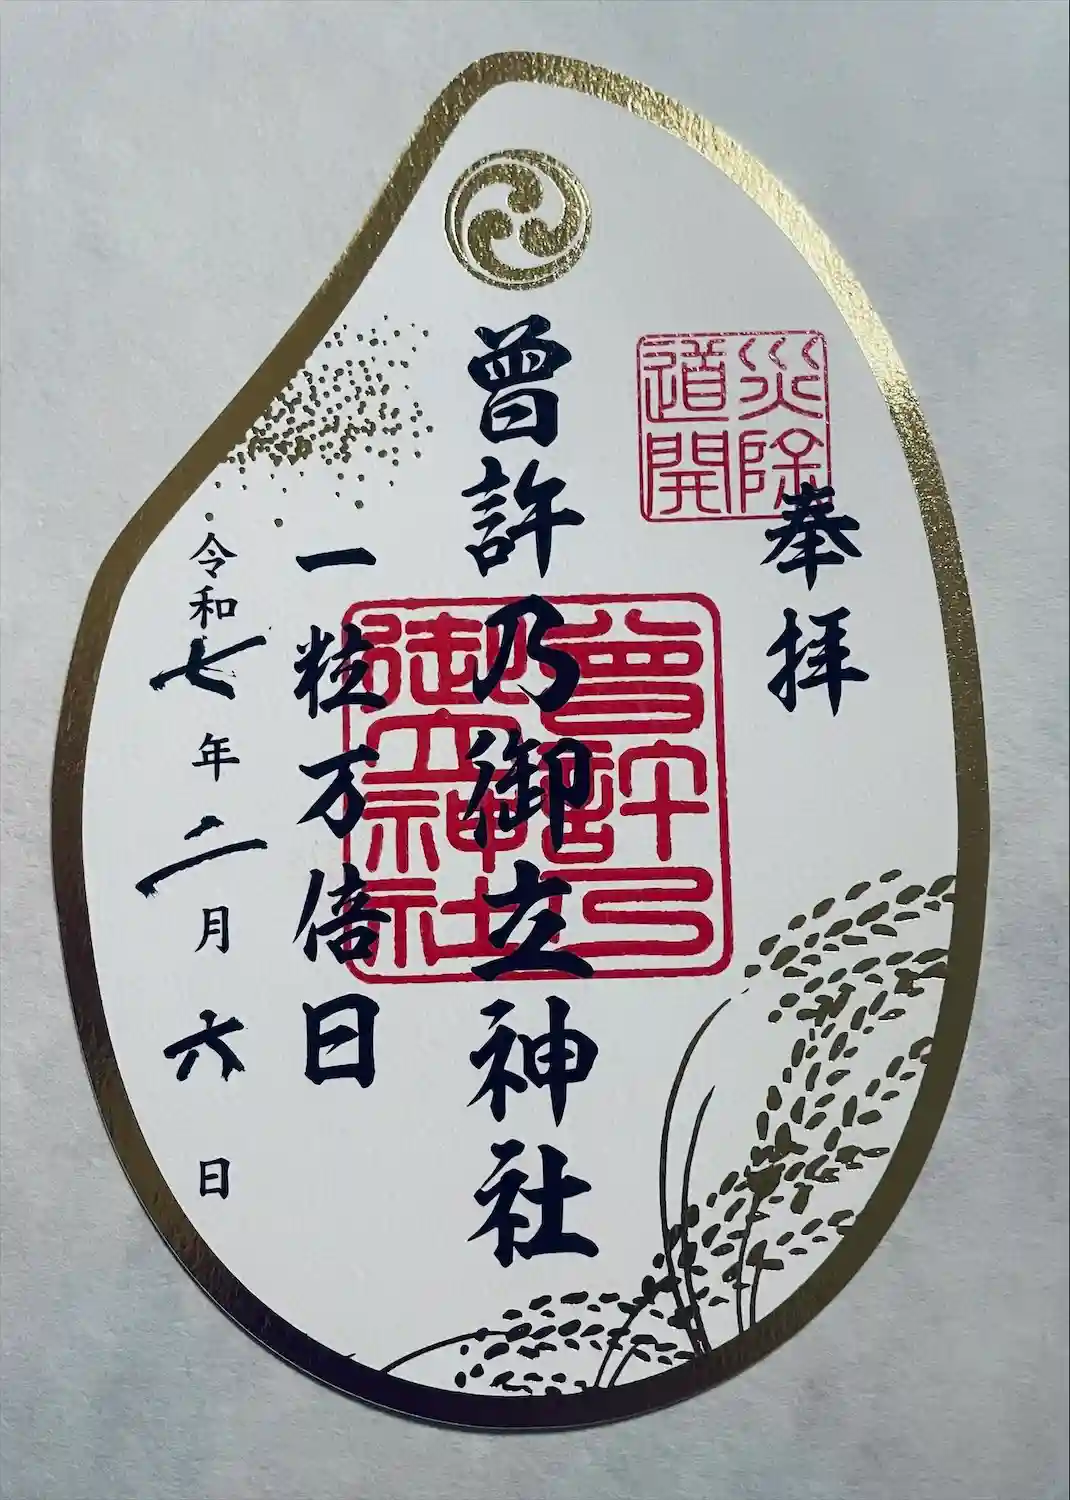 災除
道開
奉拝
曾許乃御立神社
曾許乃
御立神社
一粒万倍日
令和七年二月六日